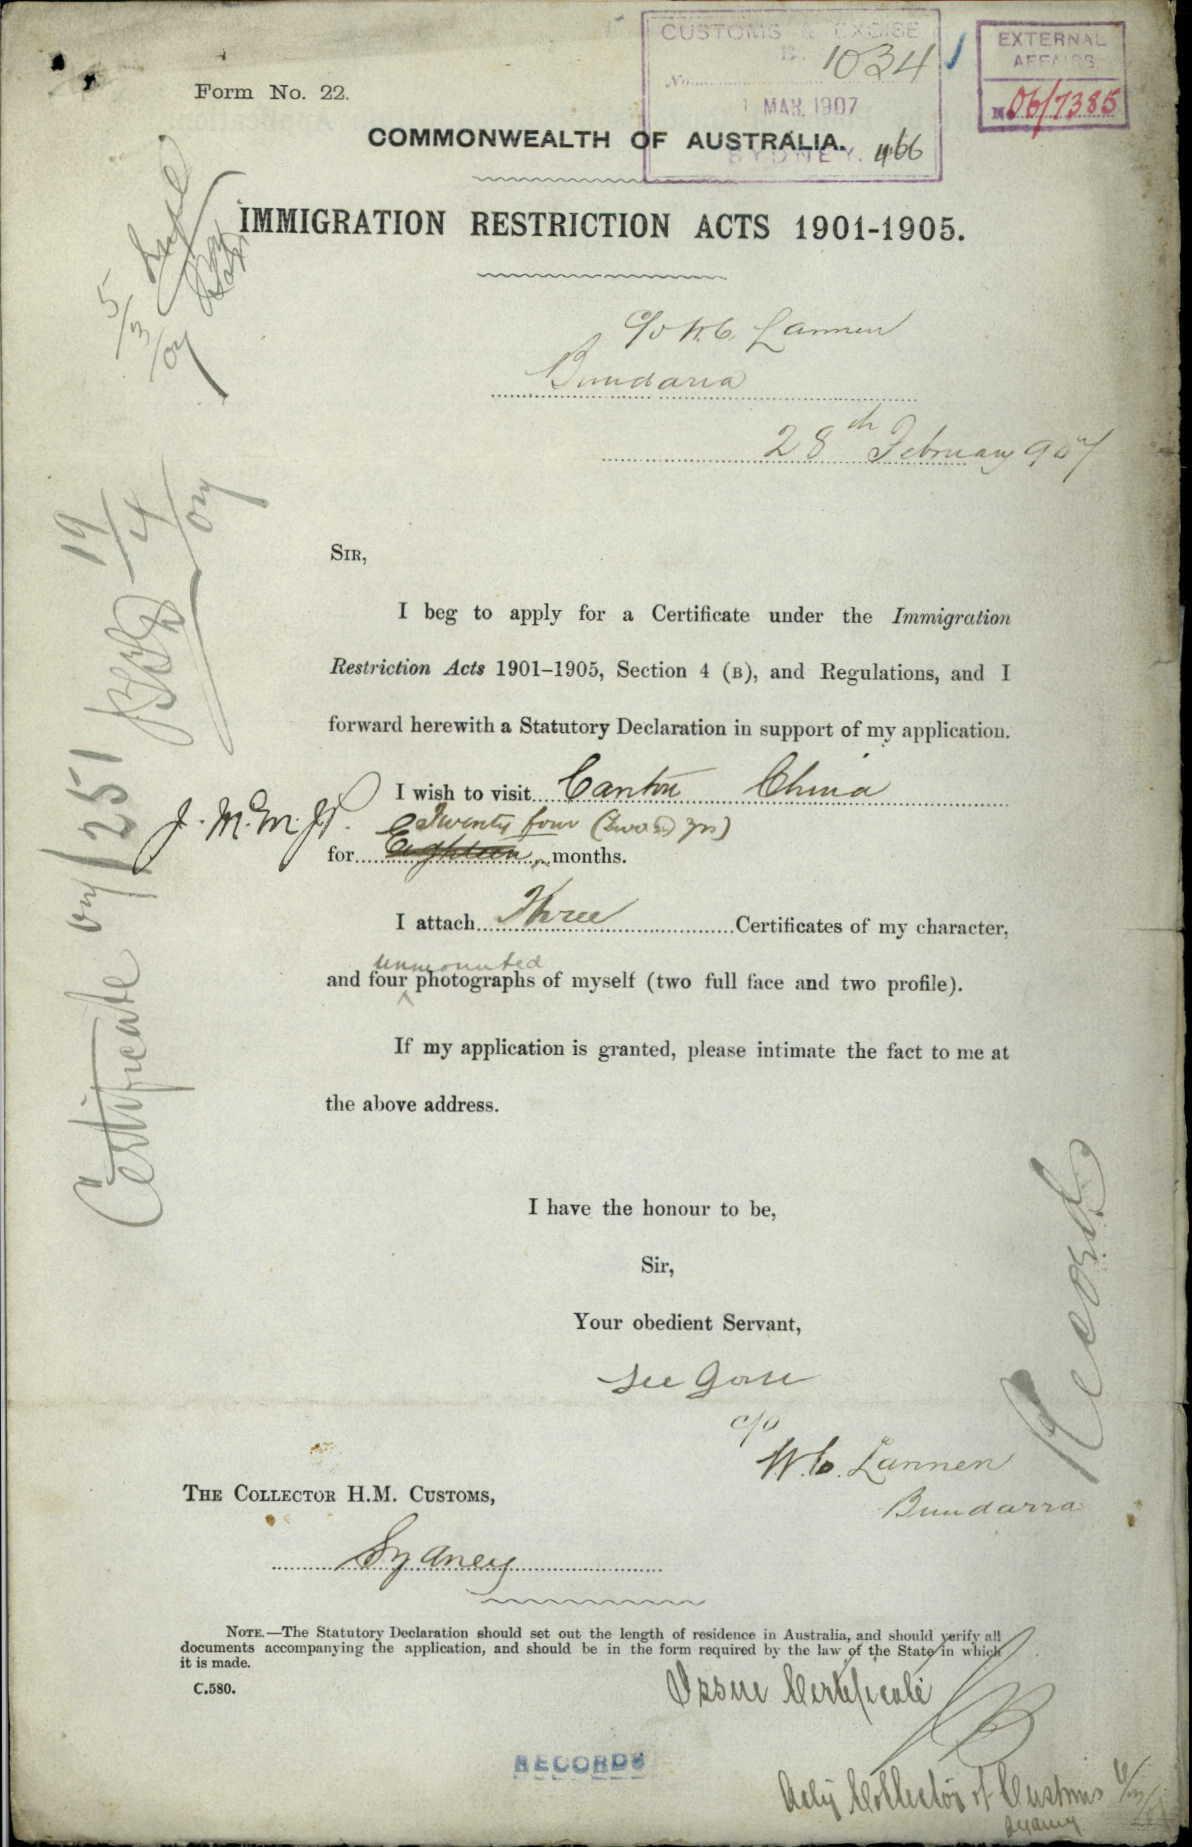 CUSTOMS & EXCISE
1034
No
1 MAR. 1907
SYDNEY.
466
EXTERNAL
AFFAIRS
No 06/7385
Form No. 22.
COMMONWEALTH OF AUSTRALIA.
IMMIGRATION RESTRICTION ACTS 1901-1905.
5/3/07
c/o W. C. Lannen
Bundarra
28th February 907
SIR,
I beg to apply for a Certificate under the Immigration
Restriction Acts 1901–1905, Section 4 (B), and Regulations, and I
forward herewith a Statutory Declaration in support of my application.
I wish to visit Canton China
Twenty four (Two yrs)
J. McM. J.P.
for Eighteen months.
I attach Three Certificates of my character,
unmounted
and four photographs of myself (two full face and two profile).
If my application is granted, please intimate the fact to me at
the above address.
I have the honour to be,
Sir,
Your obedient Servant,
See Gore
c/o
W. C. Lannen
Bundarra
THE COLLECTOR H.M. CUSTOMS,
Sydney
NOTE.—The Statutory Declaration should set out the length of residence in Australia, and should verify all
documents accompanying the application, and should be in the form required by the law of the State in which
it is made.
C.580.
Issue Certificate
RECORDS
Actg Collector of Customs
Sydney
Certificate 07/251
19/4/07
Record